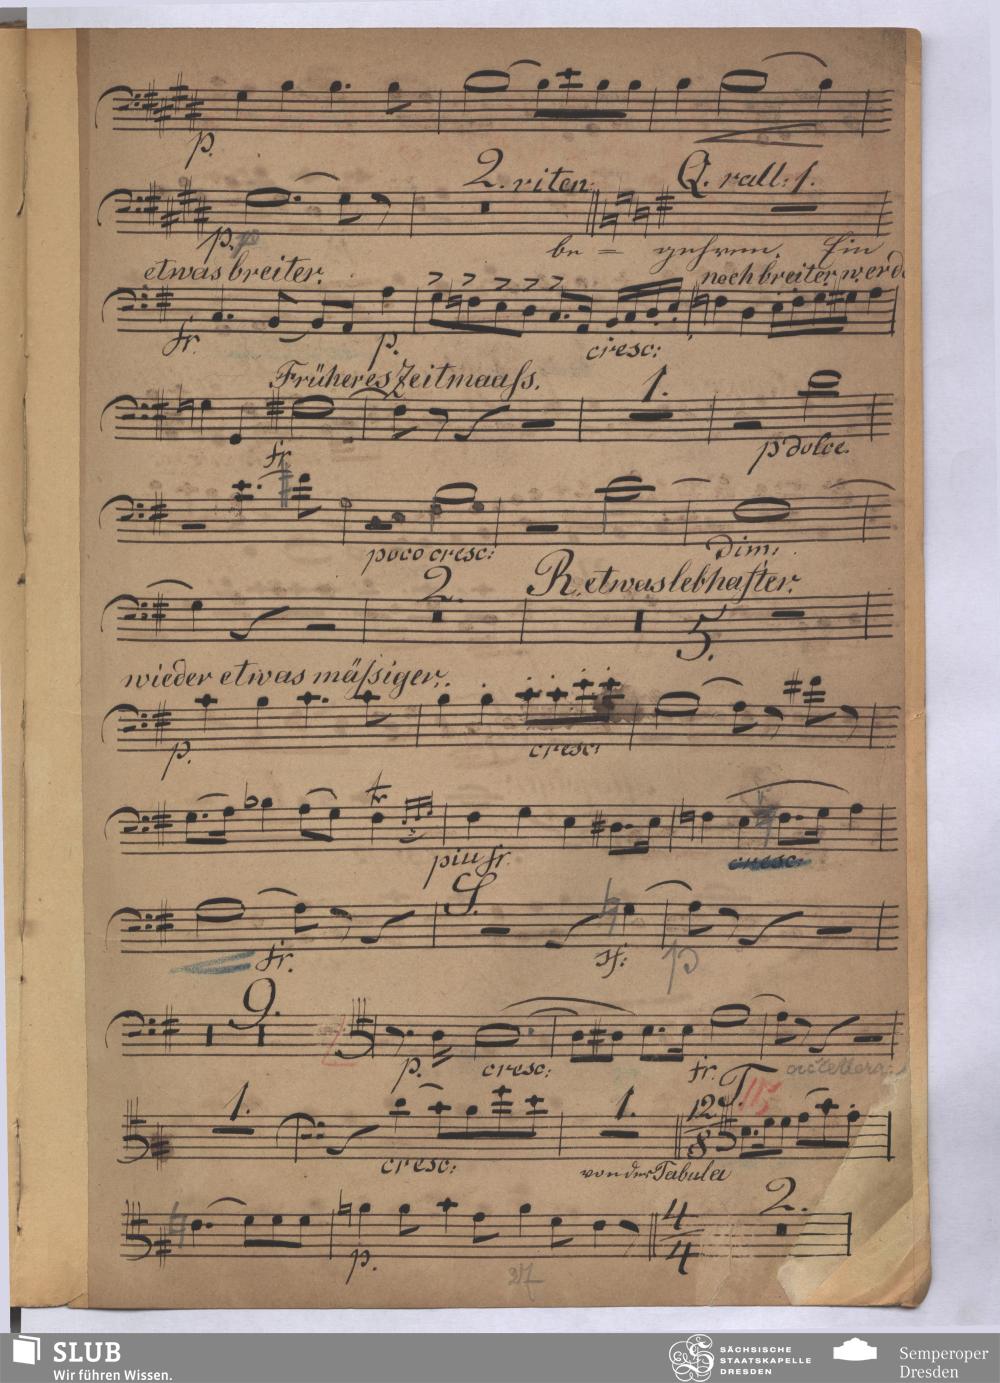 p.
2. riten: Q. rall: 1.
p. be = gehren. Ein
etwas breiter. noch breiter werd
fr. p. cresc:
Früheres Zeitmaass. 1.
fr. p dolce.
poco cresc: dim:
2. R. etwas lebhafter.
5.
wieder etwas mässiger.
p. cresc:
tr
piu fr. cresc.
S.
fr. sf: p
9.
p. cresc: fr.
1. 1. 12/8 T.
cresc: von der Tabula
2.
p. 4/4
SLUB
Wir führen Wissen.
SÄCHSISCHE
STAATSKAPELLE
DRESDEN
Semperoper
Dresden